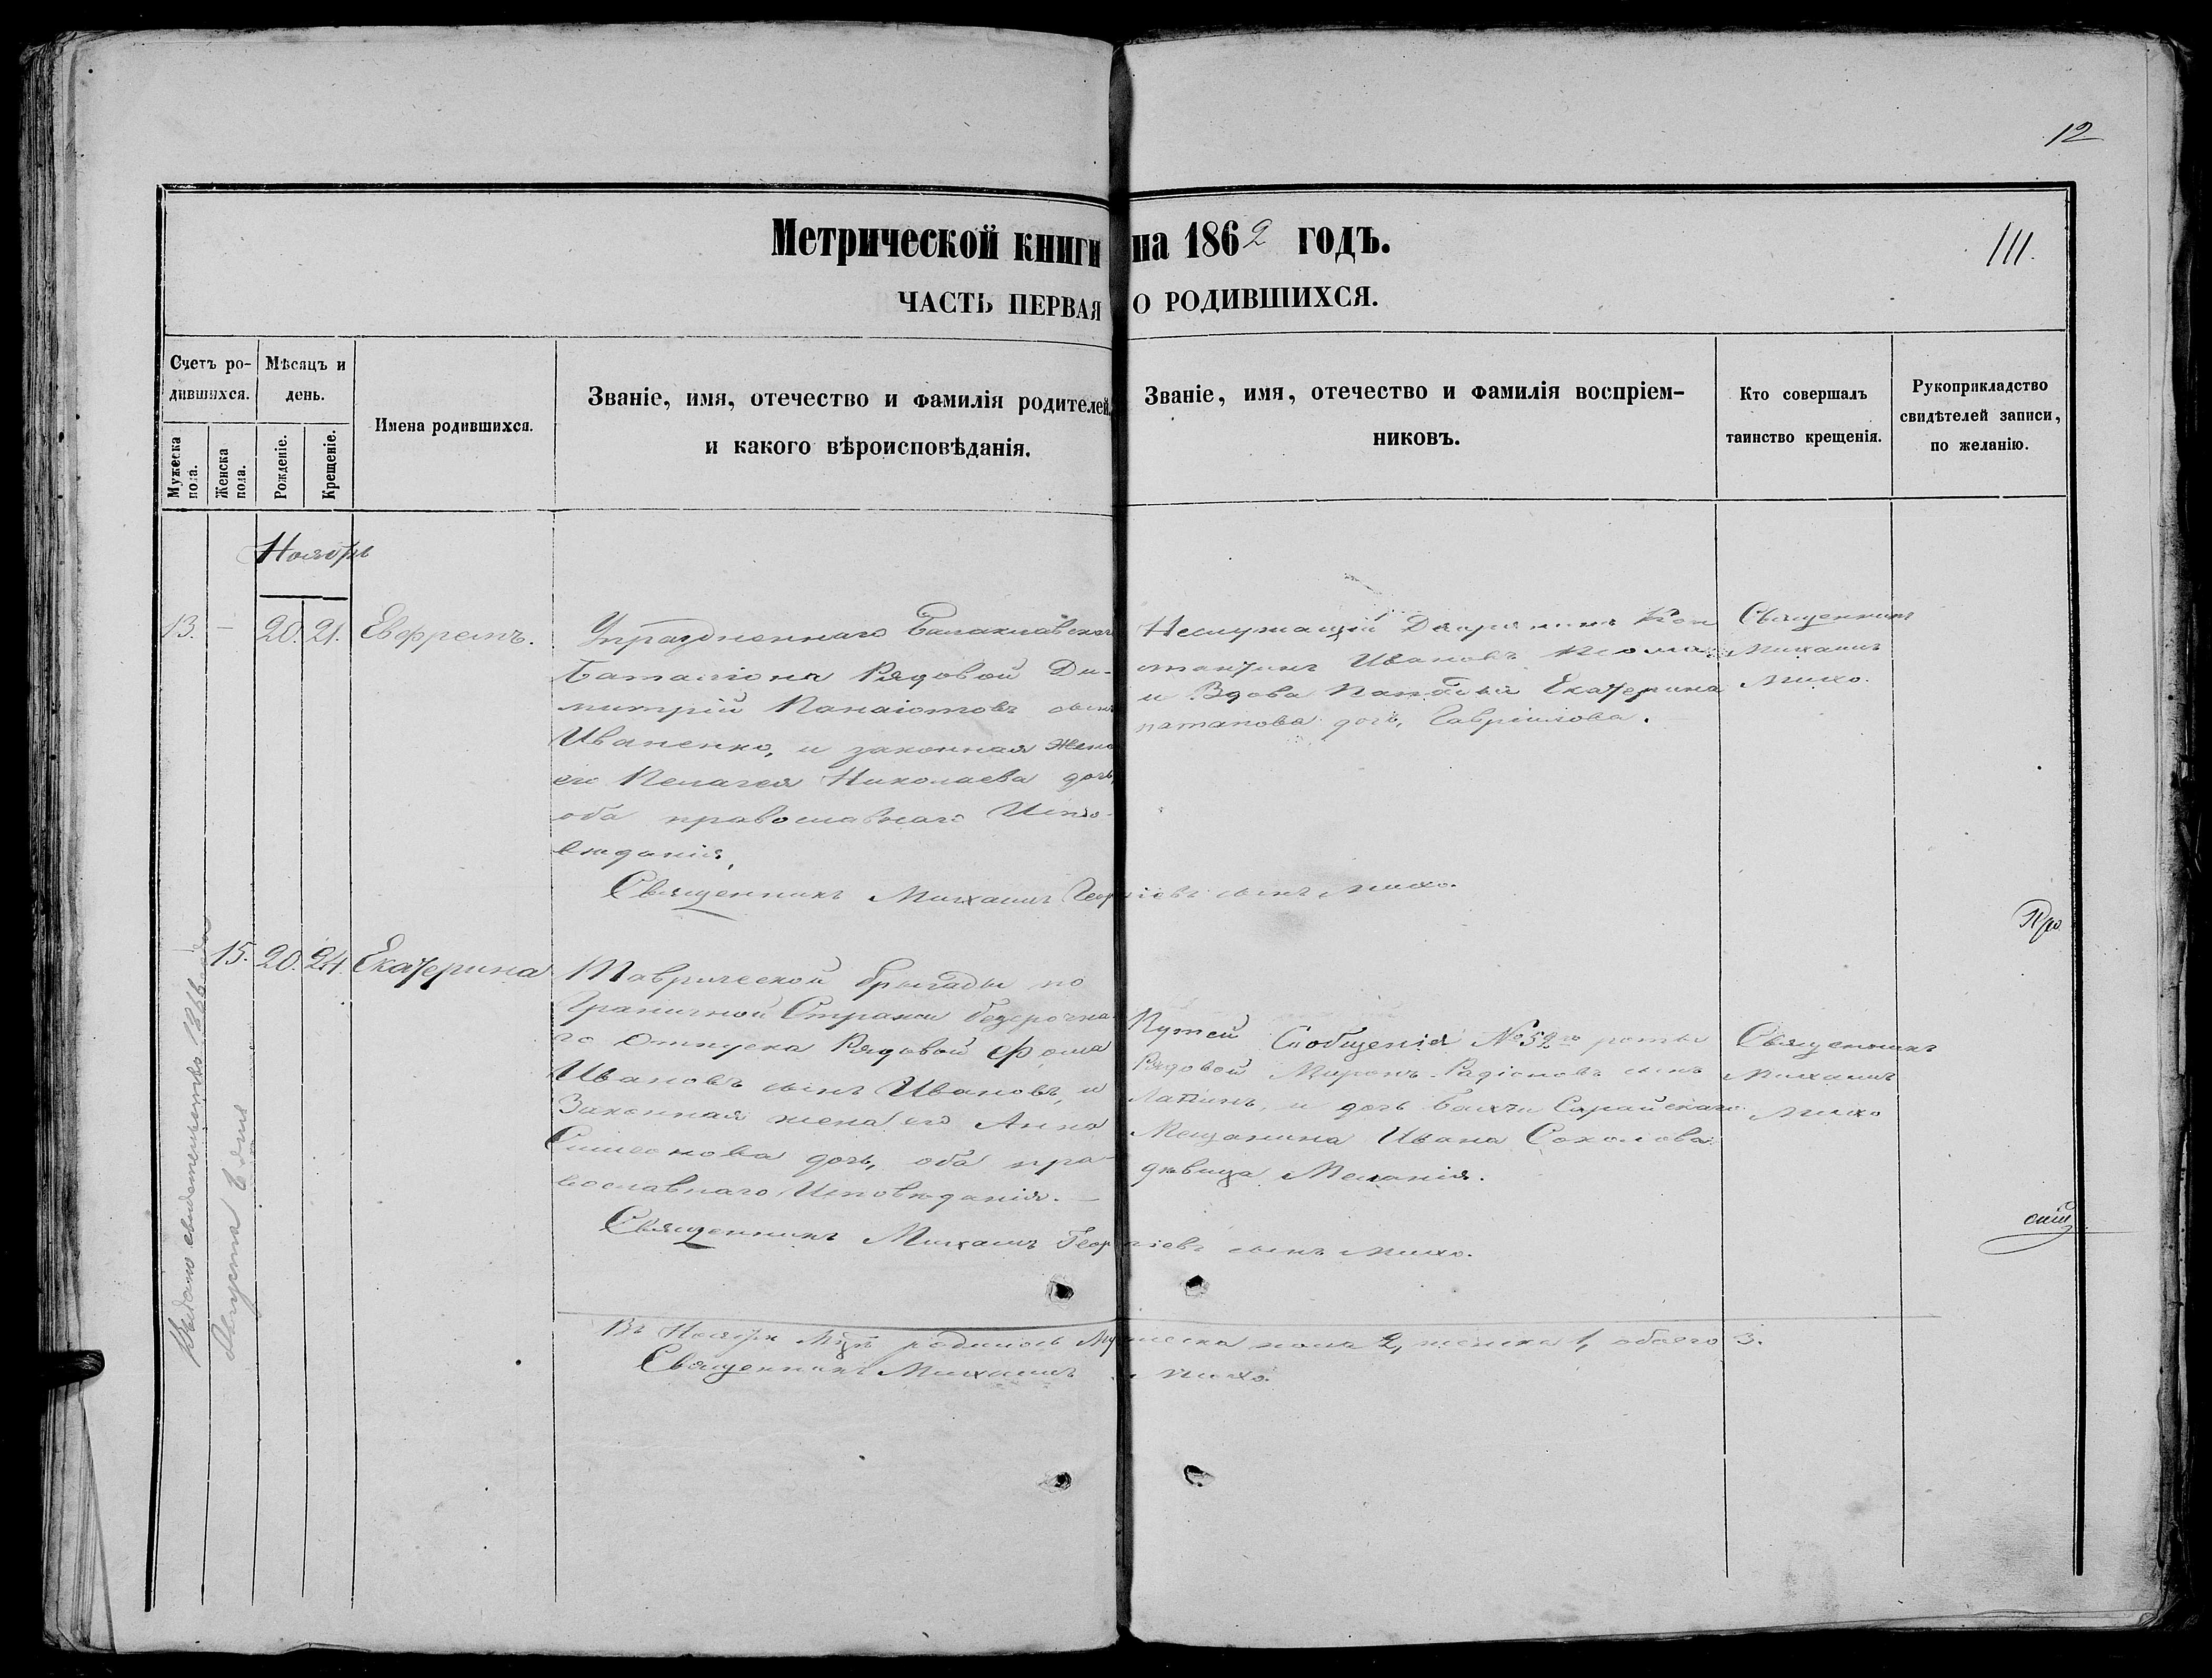 12
Метрической книги на 1862 годъ.
111.
ЧАСТЬ ПЕРВАЯ О РОДИВШИХСЯ.
Счетъ ро-
дившихся.
Мужеска пола.
Женска пола.
Мѣсяцъ и
день.
Рожденіе.
Крещеніе.
Имена родившихся.
Званіе, имя, отечество и фамилія родителей,
и какого вѣроисповѣданія.
Званіе, имя, отечество и фамилія воспріем-
никовъ.
Кто совершалъ
таинство крещенія.
Рукоприкладство
свидѣтелей записи,
по желанію.
Ноябрь
13. — 20. 21. Евфремъ.
Упраздненнаго Балаклавскаго
Баталіона Рядовой Ди-
митрій Панаіотовъ сынъ
Иваненко, и законная жена
его Пелагея Николаева дочь,
оба православнаго Испо-
вѣданія.
Неслужащій Дворянинъ Кон
стантинъ Ивановъ
и Вдова Екатерина
дочь, Гавріилова.
Священникъ
Михаилъ
Михо.
Священникъ Михаилъ Георгіевъ сынъ Михо.
15. 20. 24. Екатерина
Таврической бригады по
граничной Стражи безсрочна
го Отпуска Рядовой Фома
Ивановъ сынъ Ивановъ, и
Законная жена его Анна
Симеонова дочь, оба пра-
вославнаго Исповѣданія. —
Путей Сообщенія № 52го роты
Рядовой Миронъ Радіоновъ сынъ
Лапинъ, и дочь Бахчи Сарайскаго
Мещанина Ивана Соколова
дѣвица Меланія.
Священникъ
Михаилъ
Михо
Священникъ Михаилъ Георгіевъ сынъ Михо.
Въ Ноябрѣ Мцѣ родилось Мужеска пола 2, женска 1, обоего 3.
Священникъ Михаилъ Михо.
Выдано свидетельство 1866 года
Августа 6 дня